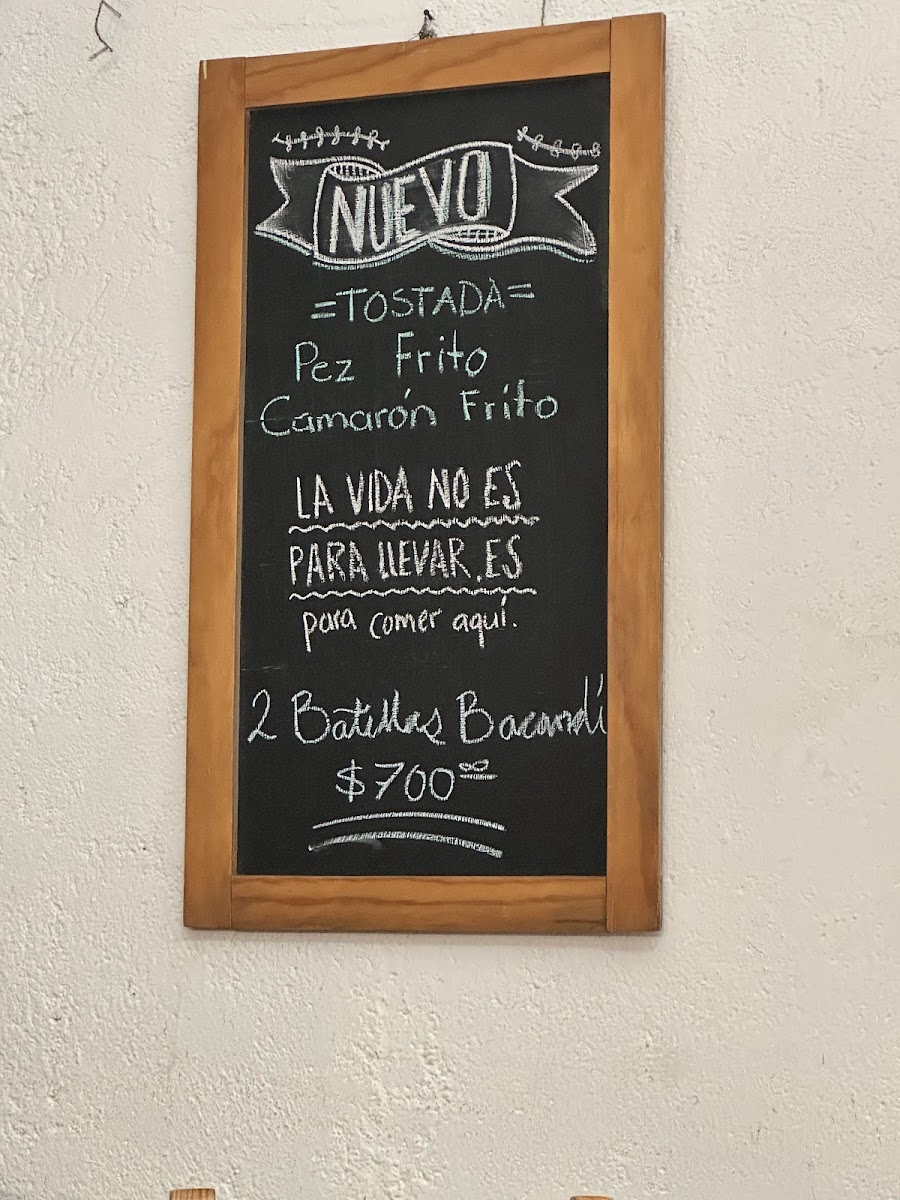 NUEVO
=TOSTADA=
Pez Frito
Camarón Frito
LA VIDA NO ES
PARA LLEVAR, ES
para comer aquí.
2 Botellas Bacardí
$700⁰⁰